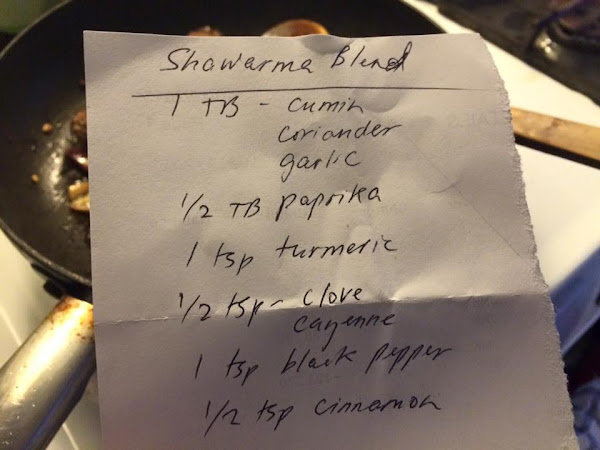 Shawarma Blend
1 TB - cumin
coriander
garlic
1/2 TB paprika
1 tsp turmeric
1/2 tsp - clove
cayenne
1 tsp black pepper
1/2 tsp cinnamon